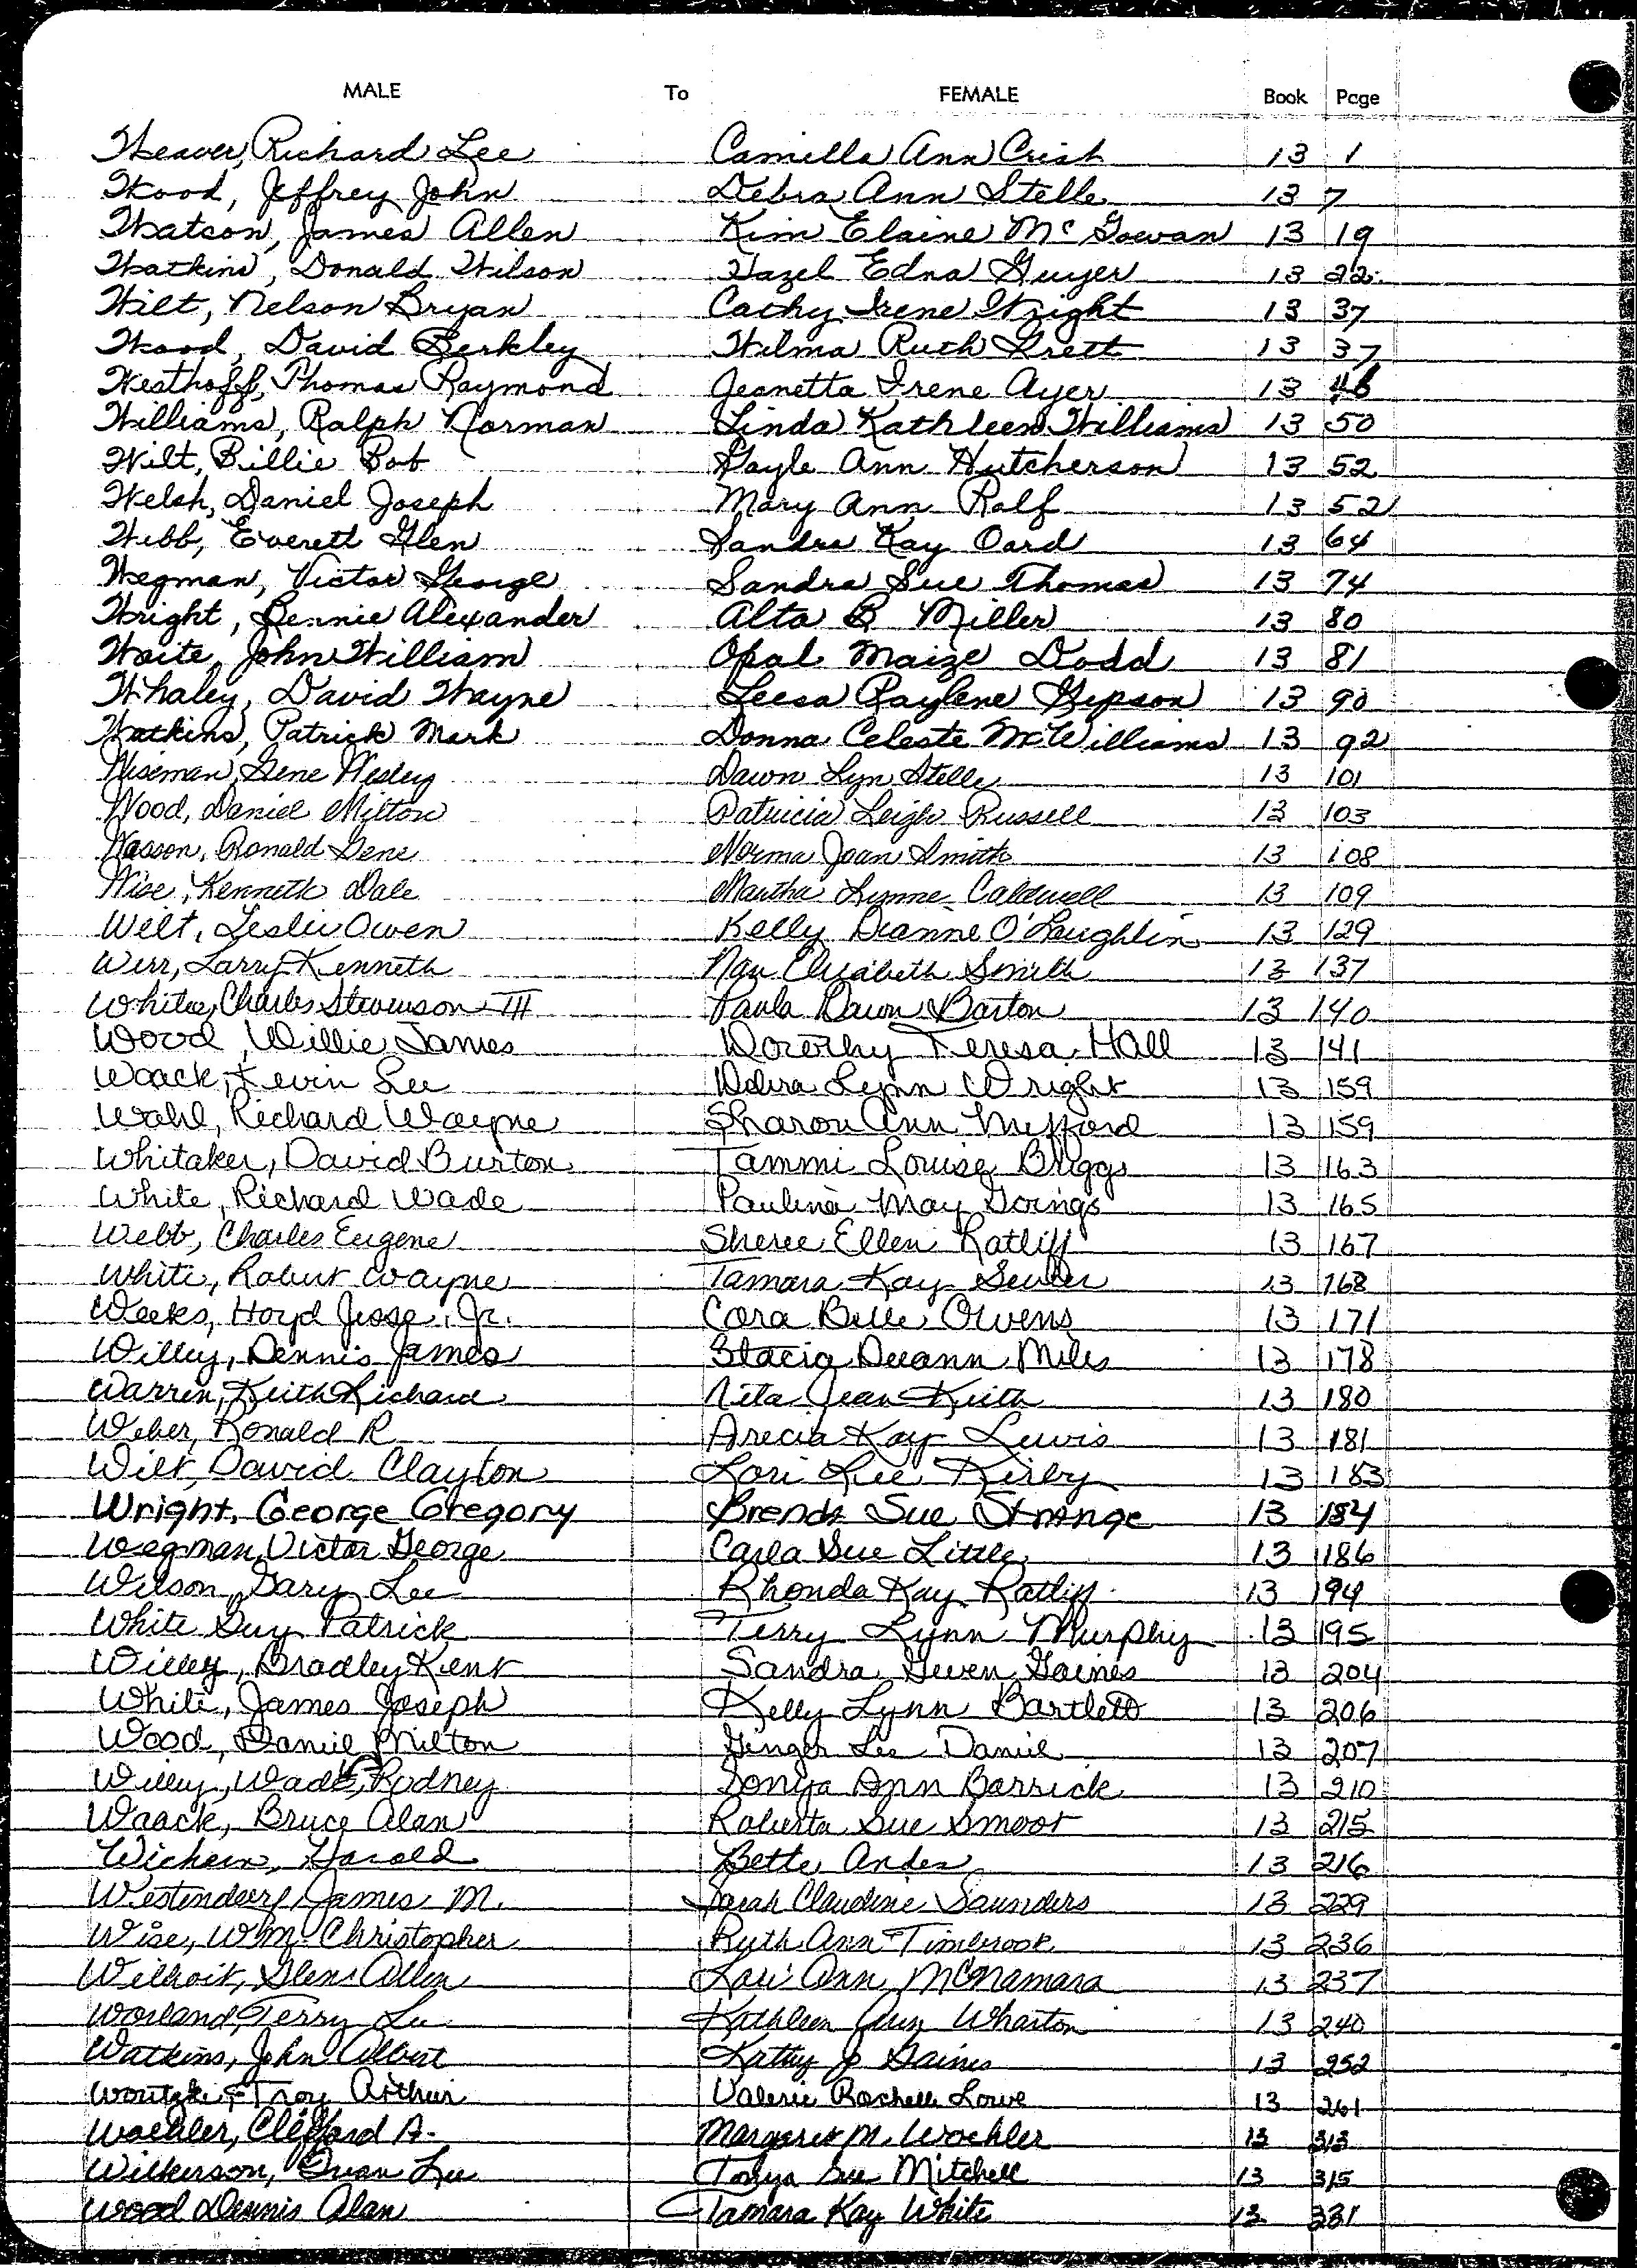 MALE To FEMALE Book Page
Weaver, Richard Lee Camilla Ann Crist 13 1
Wood, Jeffrey John Debra Ann Stelle 13 7
Watson, James Allen Kim Elaine McGowan 13 19
Watkins, Donald Wilson Hazel Edna Guyer 13 22
Wilt, Nelson Bryan Cathy Irene Wright 13 37
Wood, David Berkley Wilma Ruth Grett 13 37
Westhoff, Thomas Raymond Jeanetta Irene Ayer 13 46
Williams, Ralph Norman Linda Kathleen Williams 13 50
Wilt, Billie Bob Gayle Ann Hutcherson 13 52
Welsh, Daniel Joseph Mary Ann Ralf 13 52
Webb, Everett Glen Sandra Kay Oard 13 64
Wegman, Victor George Sandra Sue Thomas 13 74
Wright, Bennie Alexander Alta B Miller 13 80
Waite, John William Opal Maize Dodd 13 81
Whaley, David Wayne Leesa Raylene Gipson 13 90
Watkins, Patrick Mark Donna Celeste McWilliams 13 92
Wiseman, Gene Wesley Dawn Lyn Stelle 13 101
Wood, Daniel Milton Patricia Leigh Russell 13 103
Wasson, Ronald Gene Norma Joan Smith 13 108
Wise, Kenneth Dale Martha Lynne Caldwell 13 109
Welt, Leslie Owen Kelly Dianne O'Laughlin 13 129
Wirr, Larry Kenneth Nan Elizabeth Smith 13 137
White, Charles Stevenson III Paula Dawn Barton 13 140
Wood, Willie James Dorothy Teresa Hall 13 141
Waack, Kevin Lee Debra Lynn Wright 13 159
Wahl, Richard Wayne Sharon Ann Mefford 13 159
Whitaker, David Burton Tammi Louise Briggs 13 163
White, Richard Wade Paulina May Goings 13 165
Webb, Charles Eugene Sheree Ellen Ratliff 13 167
White, Robert Wayne Tamara Kay 13 168
Weeks, Hoyd Jesse, Jr. Cora Belle Owens 13 171
Willey, Dennis James Stacia Deann Miles 13 178
Warren, Keith Richard Nita Jean Keith 13 180
Weber, Ronald R Arecia Kay Lewis 13 181
Wilt, David Clayton Lori Lee Kirby 13 183
Wright, George Gregory Brenda Sue Strange 13 184
Wegman, Victor George Carla Sue Little 13 186
Wilson, Gary Lee Rhonda Kay Ratliff 13 194
White Guy Patrick Terry Lynn Murphy 13 195
Willey, Bradley Kent Sandra Gwen Gaines 13 204
White, James Joseph Kelly Lynn Bartlett 13 206
Wood, Daniel Milton Ginger Lee Daniel 13 207
Willey, Wade Rodney Sonya Ann Barrick 13 210
Waack, Bruce Alan Roberta Sue Smoot 13 215
Wichern, Harold Bette Andes 13 216
Westendorf, James M. Sarah Claudine Saunders 13 229
Wise, Wm. Christopher Ruth Ann Timbrook 13 236
Wilhoit, Glenn Allen Lori Ann McNamara 13 237
Worland, Terry Lee Kathleen Ann Wharton 13 240
Watkins, John Albert Kathy Jo Gaines 13 252
Troy Arthur Valerie Rochelle Lowe 13 261
Woehler, Clifford A. Margaret M. Woehler 13 313
Wilkerson, Evan Lee Tonya Sue Mitchell 13 315
Wood Dennis Alan Tamara Kay White 13 331